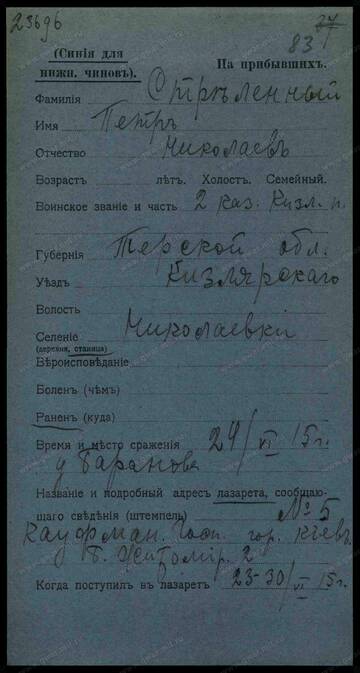 23696
37
83
(Синія для
нижн. чиновъ).
На прибывшихъ.
Фамилія Стрѣленный
Имя Петръ
Отчество Николаевъ
Возрастъ лѣтъ. Холостъ. Семейный.
Воинское званіе и часть 2 каз. Кизл. п.
Губернія Терской обл.
Уѣздъ Кизлярскаго
Волость
Селеніе Николаевки
(деревня, станица)
Вѣроисповѣданіе
Боленъ (чѣмъ)
Раненъ (куда)
Время и мѣсто сраженія 24/VI 15 г.
у Баранова
Названіе и подробный адресъ лазарета, сообщаю-
щаго свѣдѣнія (штемпель) № 5
Кауфман. Госп. гор. Кіевъ
Б. Житомір. 2
Когда поступилъ въ лазаретъ 23-30/VI 15 г.